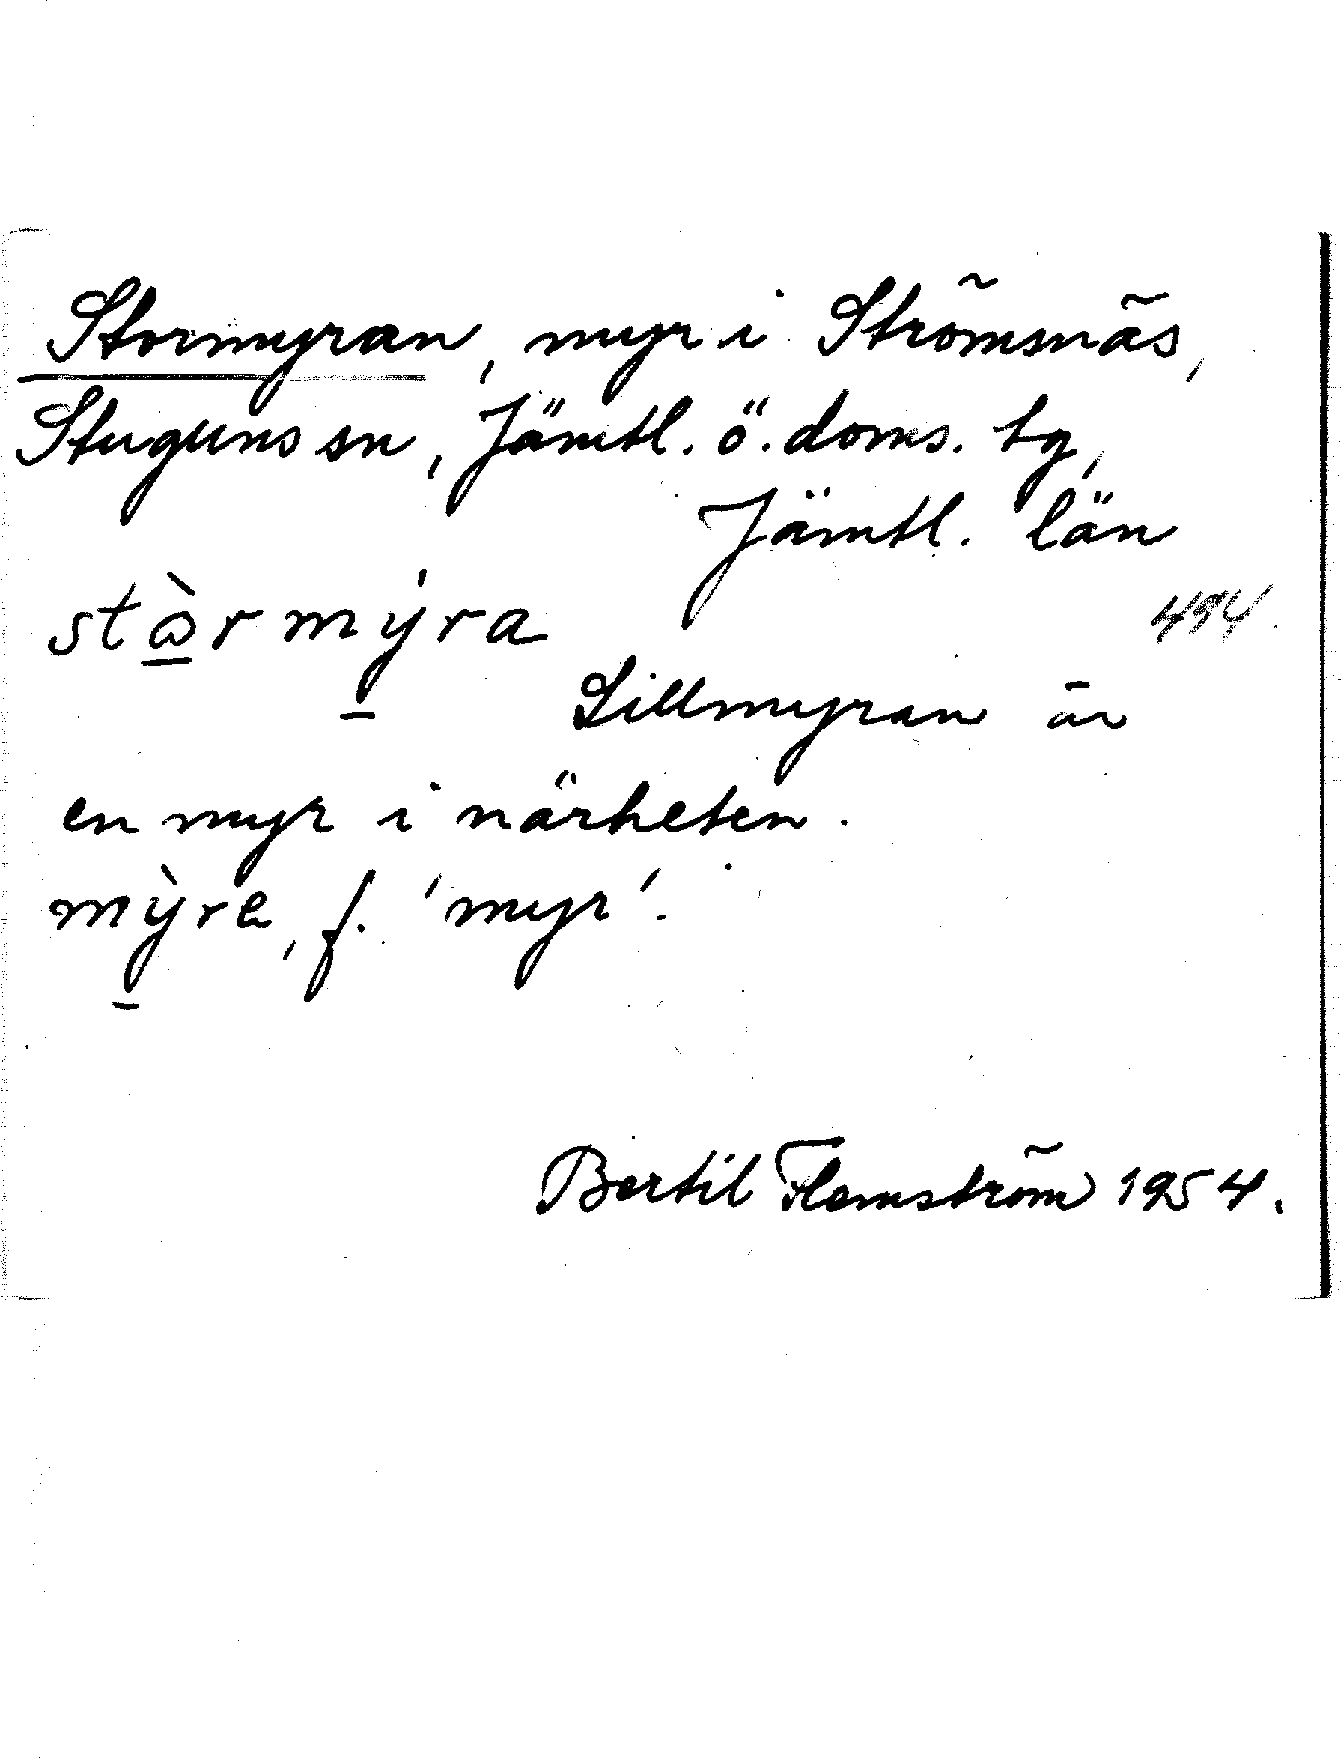 Stormyran, myr i Strömsnäs,
Stuguns sn, Jämtl. ö. doms. tg,
Jämtl. län
stɷ̲̀rmý̲ra
494
Lillmyran är
en myr i närheten.
mỳ̲re, f. 'myr'.
Bertil Flemström 1954.